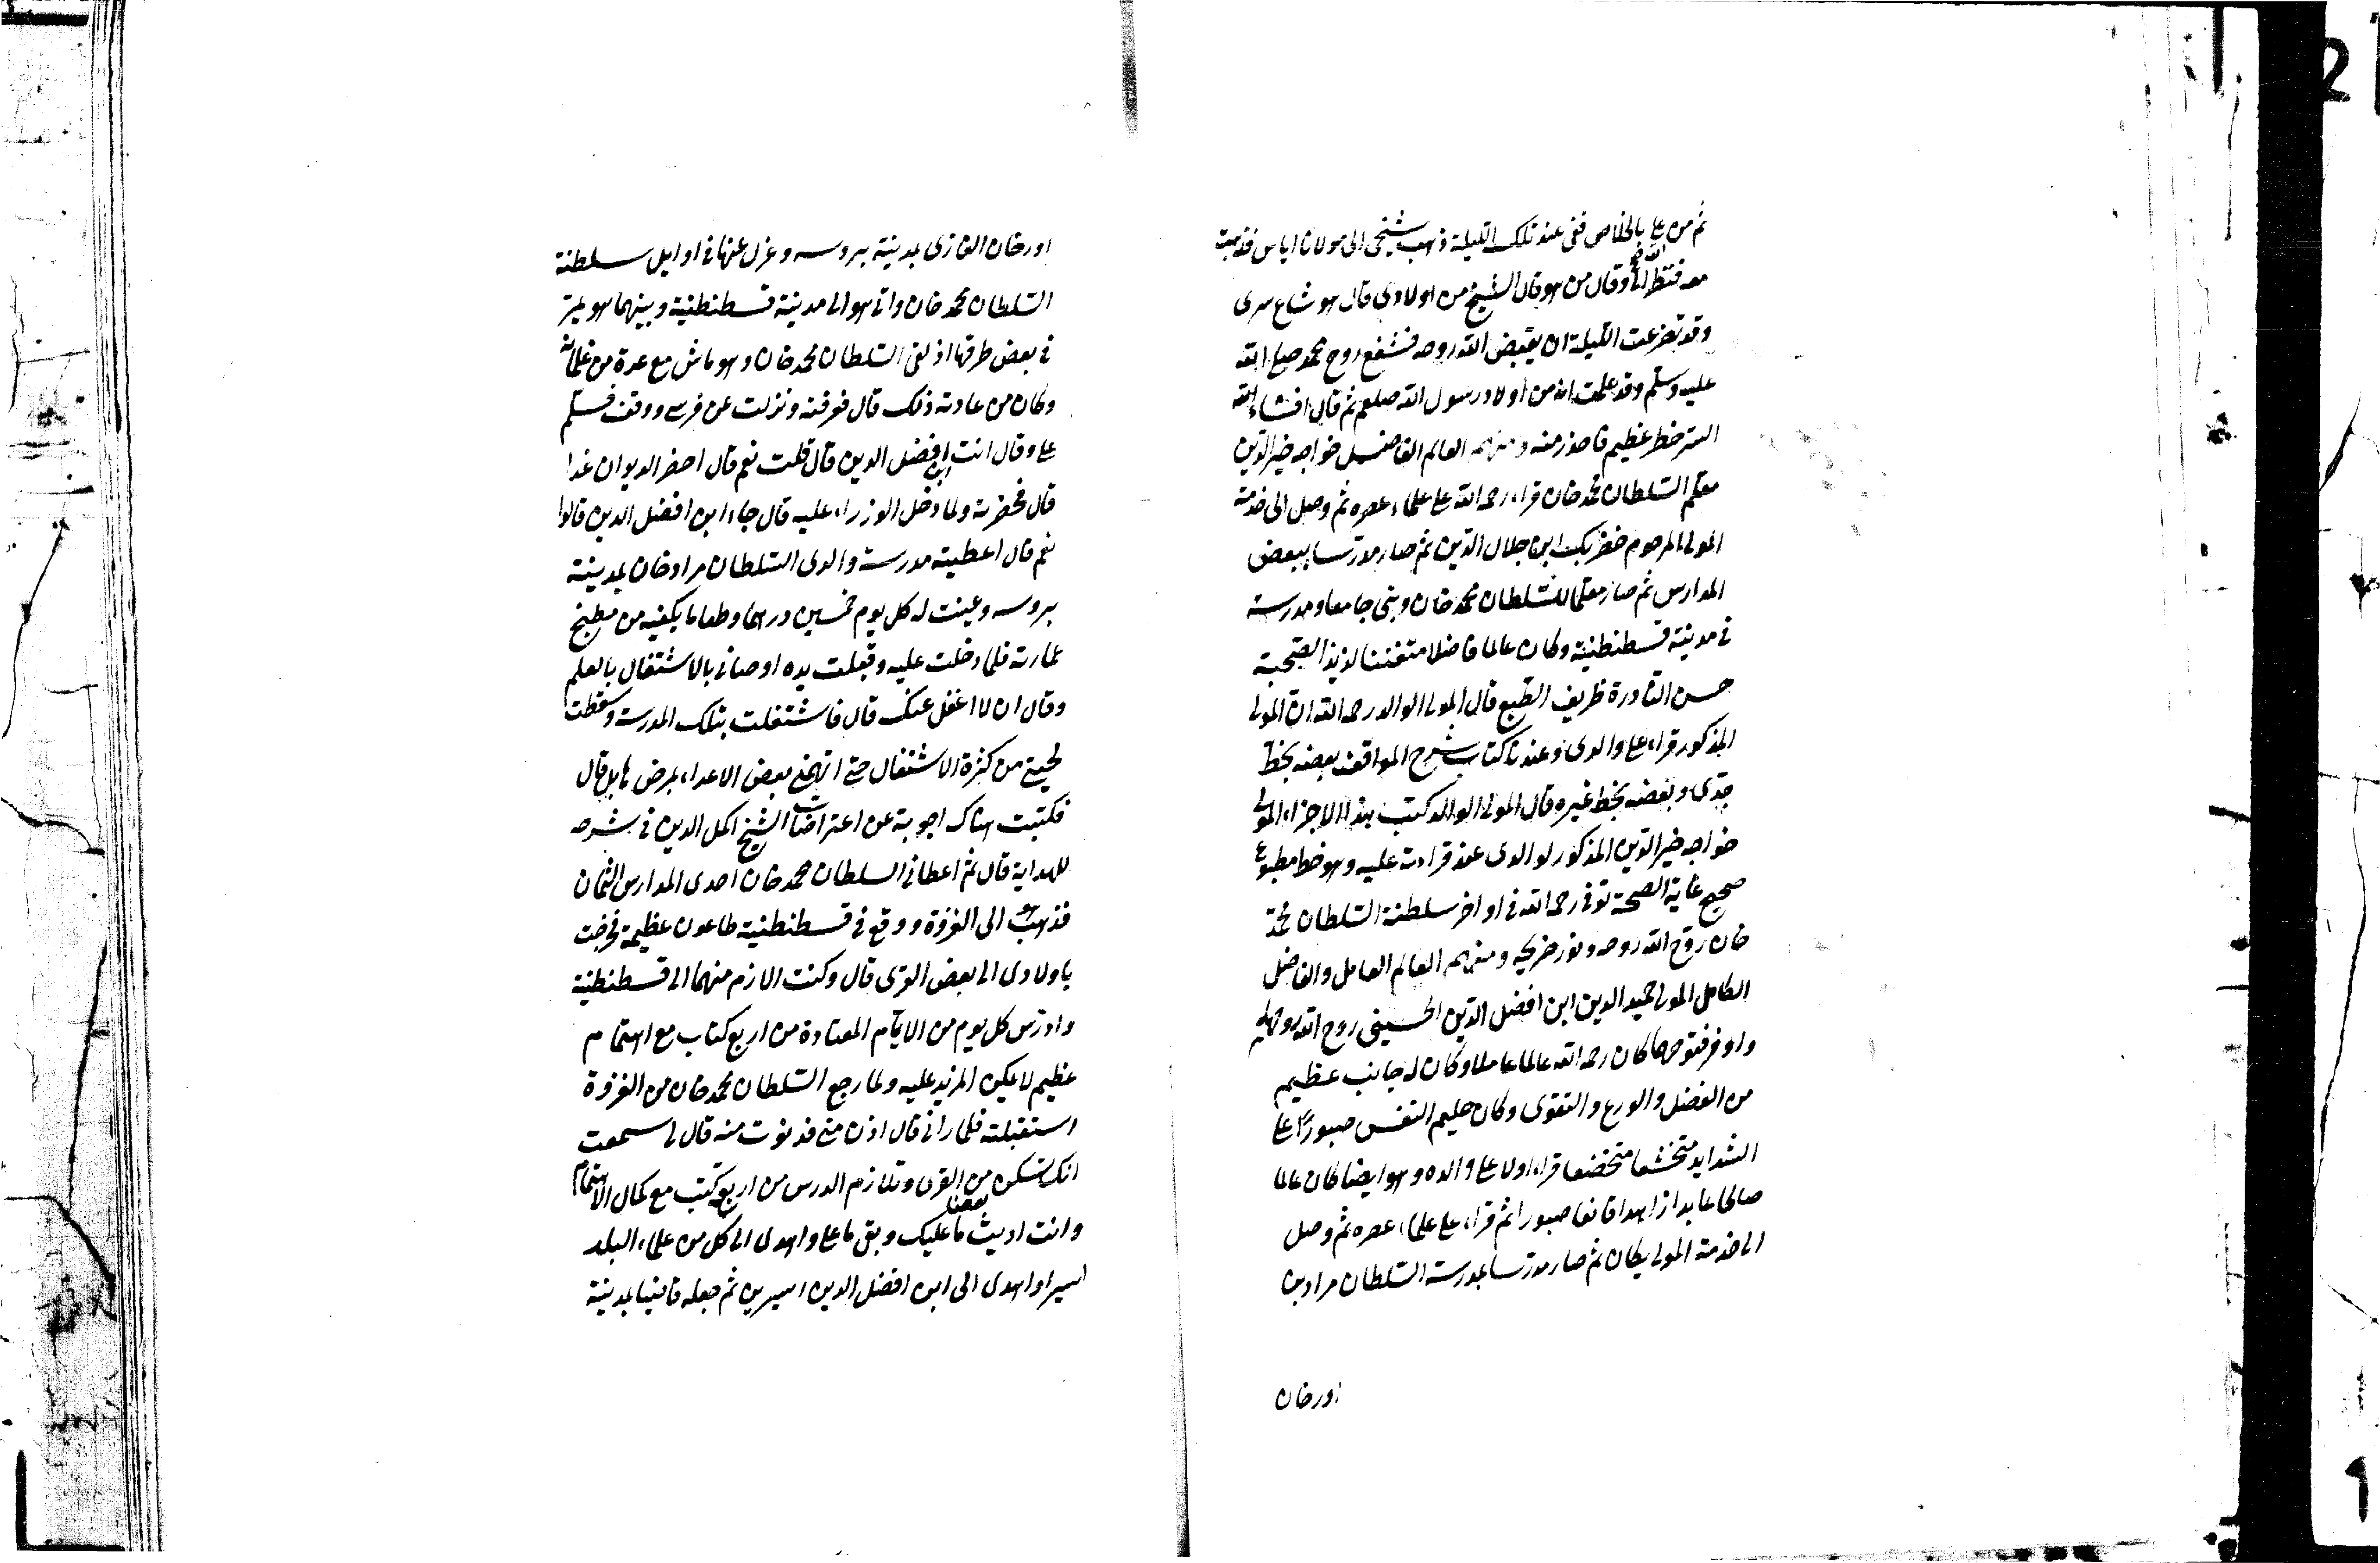 ثم من علي بالخلاص ففي غد تلك الليلة ذهب شيخي الى مولانا اياس فذهبت
معه فنظر اليّ وقال من هو قال الشيخ من اولادي قال هو شاع سري
وقد تضرعت الليلة ان يقبض الله روحه فتشفع روح محمد صلى الله
عليه وسلم وقد علمت انه من اولاد رسول الله صلعم ثم قال افشاء
السر خطر عظيم فاحذر منه ومنهم العالم الفاضل خواجه خير الدين
معلم السلطان محمد خان قراء رحمه الله على علماء عصره ثم وصل الى خدمة
المولى المرحوم خضر بك ابن جلال الدين ثم صار مدرسا ببعض
المدارس ثم صار معلما للسلطان محمد خان وبنى جامعا ومدرسة
في مدينة قسطنطنية وكان عالما فاضلا متفننا لذيذ الصحبة
حسن النادرة ظريف الطبع قال المولى الوالد رحمه الله ان المولى
المذكور قراء على والدي وعندنا كتاب شرح المواقف بعضه بخط
جدي وبعضه بخط غيره قال المولى الوالد كتب هذا الاجزاء المولى
خواجه خير الدين المذكور لوالدي عند قراءته عليه وهو خط مطبوع
صحيح غاية الصحة توفي رحمه الله في اواخر سلطنة السلطان محمد
خان روّح الله روحه ونور ضريحه ومنهم العالم العامل والفاضل
الكامل المولى حميد الدين ابن افضل الدين الحسيني روح الله روحهما
واوفر فتوحهما كان رحمه الله عالما عاملا وكان له جانب عظيم
من الفضل والورع والتقوى وكان حليم النفس صبورا على
الشدايد متخشعا متخضعا قراء اولا على والده وهو ايضا كان عالما
صالحا عابدا زاهدا قانعا صبورا ثم قراء على علماء عصره ثم وصل
الى خدمة المولى يكان ثم صار مدرسا بمدرسة السلطان مراد بن
اورخان
اورخان الغازي بمدينة بروسه وعزل عنها في اوايل سلطنة
السلطان محمد خان واتى هو الى مدينة قسطنطنية وبينما هو يمر
في بعض طرقها اذ لقي السلطان محمد خان وهو ماش مع عدة من غلمانه
وكان من عادته ذلك قال فعرفته ونزلت عن فرسي ووقفت فسلم
علي وقال انت ابن افضل الدين قال قلت نعم قال احضر الديوان غدا
قال فحضرت ولما دخل الوزراء عليه قال جاء ابن افضل الدين قالوا
نعم قال اعطيته مدرسة والدي السلطان مراد خان بمدينة
بروسه وعينت له كل يوم خمسين درهما وطعاما يكفيه من مطبخ
عمارته فلما دخلت عليه وقبلت يده اوصاني بالاشتغال بالعلم
وقال ان لا اغفل عنك قال فاشتغلت بتلك المدرسة وسقطت
لحيتي من كثرة الاشتغال حتى اتهمني بعض الاعداء بمرض هايل قال
فكتبت هناك اجوبة عن اعتراضات الشيخ اكمل الدين في شرحه
للهداية قال ثم اعطاني السلطان محمد خان احدى المدارس الثمان
فذهب هو الى الغزوة ووقع في قسطنطنية طاعون عظيمة فخرجت
باولادي الى بعض القرى قال وكنت الازم منها الى قسطنطنية
وادرّس كل يوم من الايام المعتادة من اربع كتاب مع اهتمام
عظيم لا يمكن المزيد عليه ولما رجع السلطان محمد خان من الغزوة
استقبلته فلما رآني قال ادن مني فدنوت منه قال لي سمعت
انك تسكن من بعض القرى وتلازم الدرس من اربع كتب مع كمال الاهتمام
وانت اديت ما عليك وبقي ما علي واهدى الى كل من علماء البلد
اسيرا واهدى الى ابن افضل الدين اسيرين ثم جعله قاضيا بمدينة